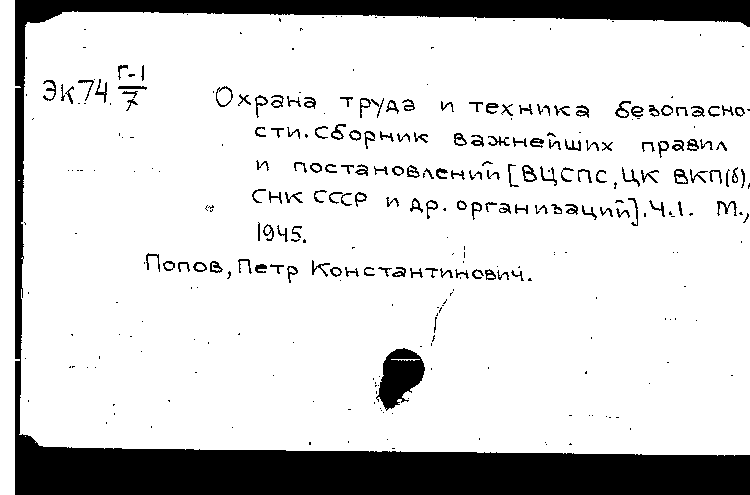 Эк74 Г-1/7
Охрана труда и техника безопасно-
сти. Сборник важнейших правил
и постановлений [ВЦСПС, ЦК ВКП(б),
СНК СССР и др. организаций]. Ч.1. М.,
1945.
Попов, Петр Константинович.